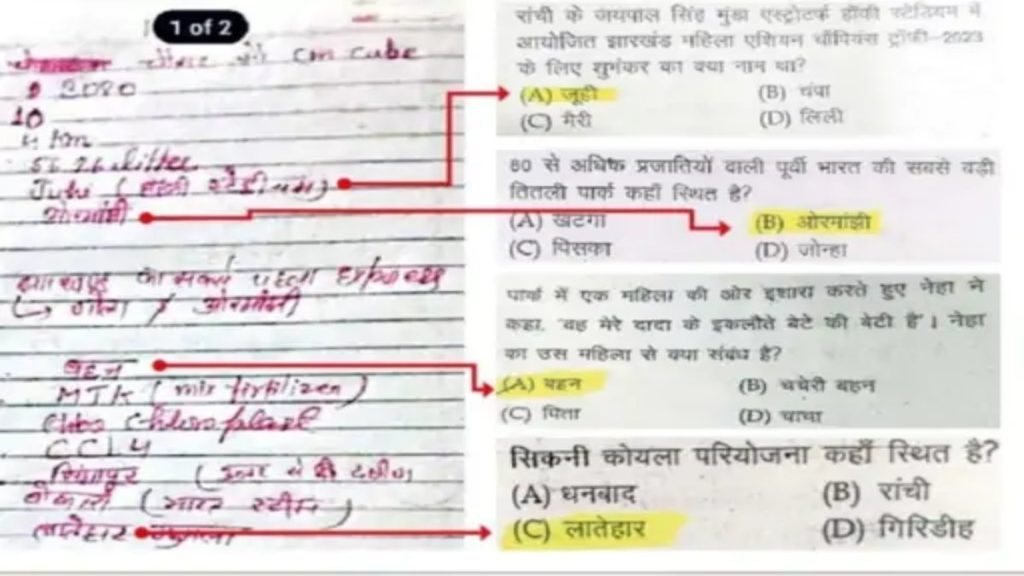 1 of 2
cm cube
2080
10
4 km
56.76 litter
Juhi (हॉकी स्टेडीयम)
ओरमांझी
झारखण्ड का सबसे पहला
गोला / ओरमांझी
बहन
MTK (mix fertilizer)
CCL4
(उत्तर से
बोकारो (भारत स्टील)
लातेहार गुमला
रांची के जयपाल सिंह मुंडा एस्ट्रोटर्फ हॉकी स्टेडियम में
आयोजित झारखंड महिला एशियन चैंपियंस ट्रॉफी-2023
के लिए शुभंकर का क्या नाम था?
(A) जूही (B) चंपा
(C) मैरी (D) लिली
80 से अधिक प्रजातियों वाली पूर्वी भारत की सबसे बड़ी
तितली पार्क कहाँ स्थित है?
(A) खटंगा (B) ओरमांझी
(C) पिसका (D) जोन्हा
पार्क में एक महिला की ओर इशारा करते हुए नेहा ने
कहा, 'वह मेरे दादा के इकलौते बेटे की बेटी है'। नेहा
का उस महिला से क्या संबंध है?
(A) बहन (B) चचेरी बहन
(C) पिता (D) चाचा
सिकनी कोयला परियोजना कहाँ स्थित है?
(A) धनबाद (B) रांची
(C) लातेहार (D) गिरिडीह